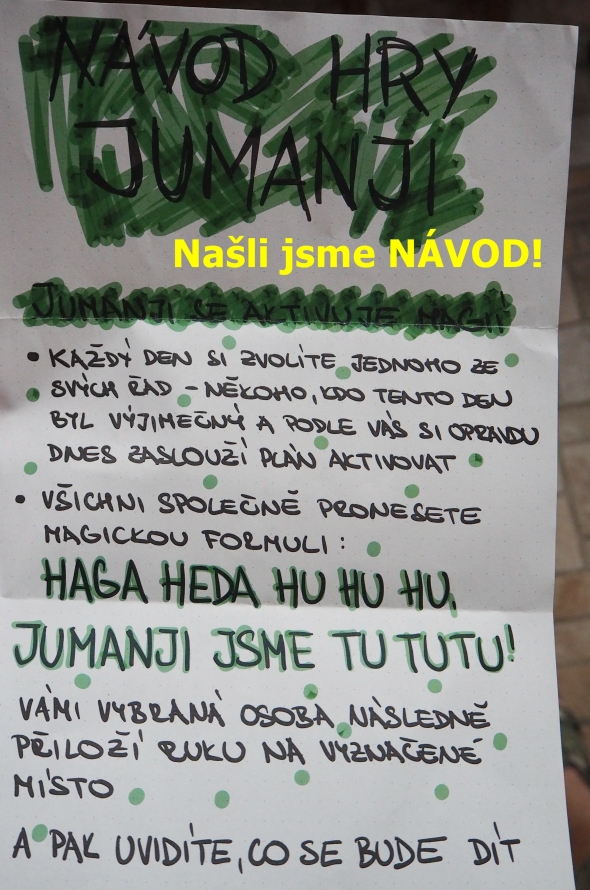 NÁVOD HRY
JUMANJI
Našli jsme NÁVOD!
JUMANJI SE AKTIVUJE MAGIÍ
• KAŽDÝ DEN SI ZVOLÍTE JEDNOHO ZE
SVÝCH ŘAD - NĚKOHO, KDO TENTO DEN
BYL VÝJIMEČNÝ A PODLE VÁS SI OPRAVDU
DNES ZASLOUŽÍ PLÁN AKTIVOVAT
• VŠICHNI SPOLEČNĚ PRONESETE
MAGICKOU FORMULI:
HAGA HEDA HU HU HU,
JUMANJI JSME TU TUTU!
VÁMI VYBRANÁ OSOBA NÁSLEDNĚ
PŘILOŽÍ RUKU NA VYZNAČENÉ
MÍSTO
A PAK UVIDÍTE, CO SE BUDE DÍT